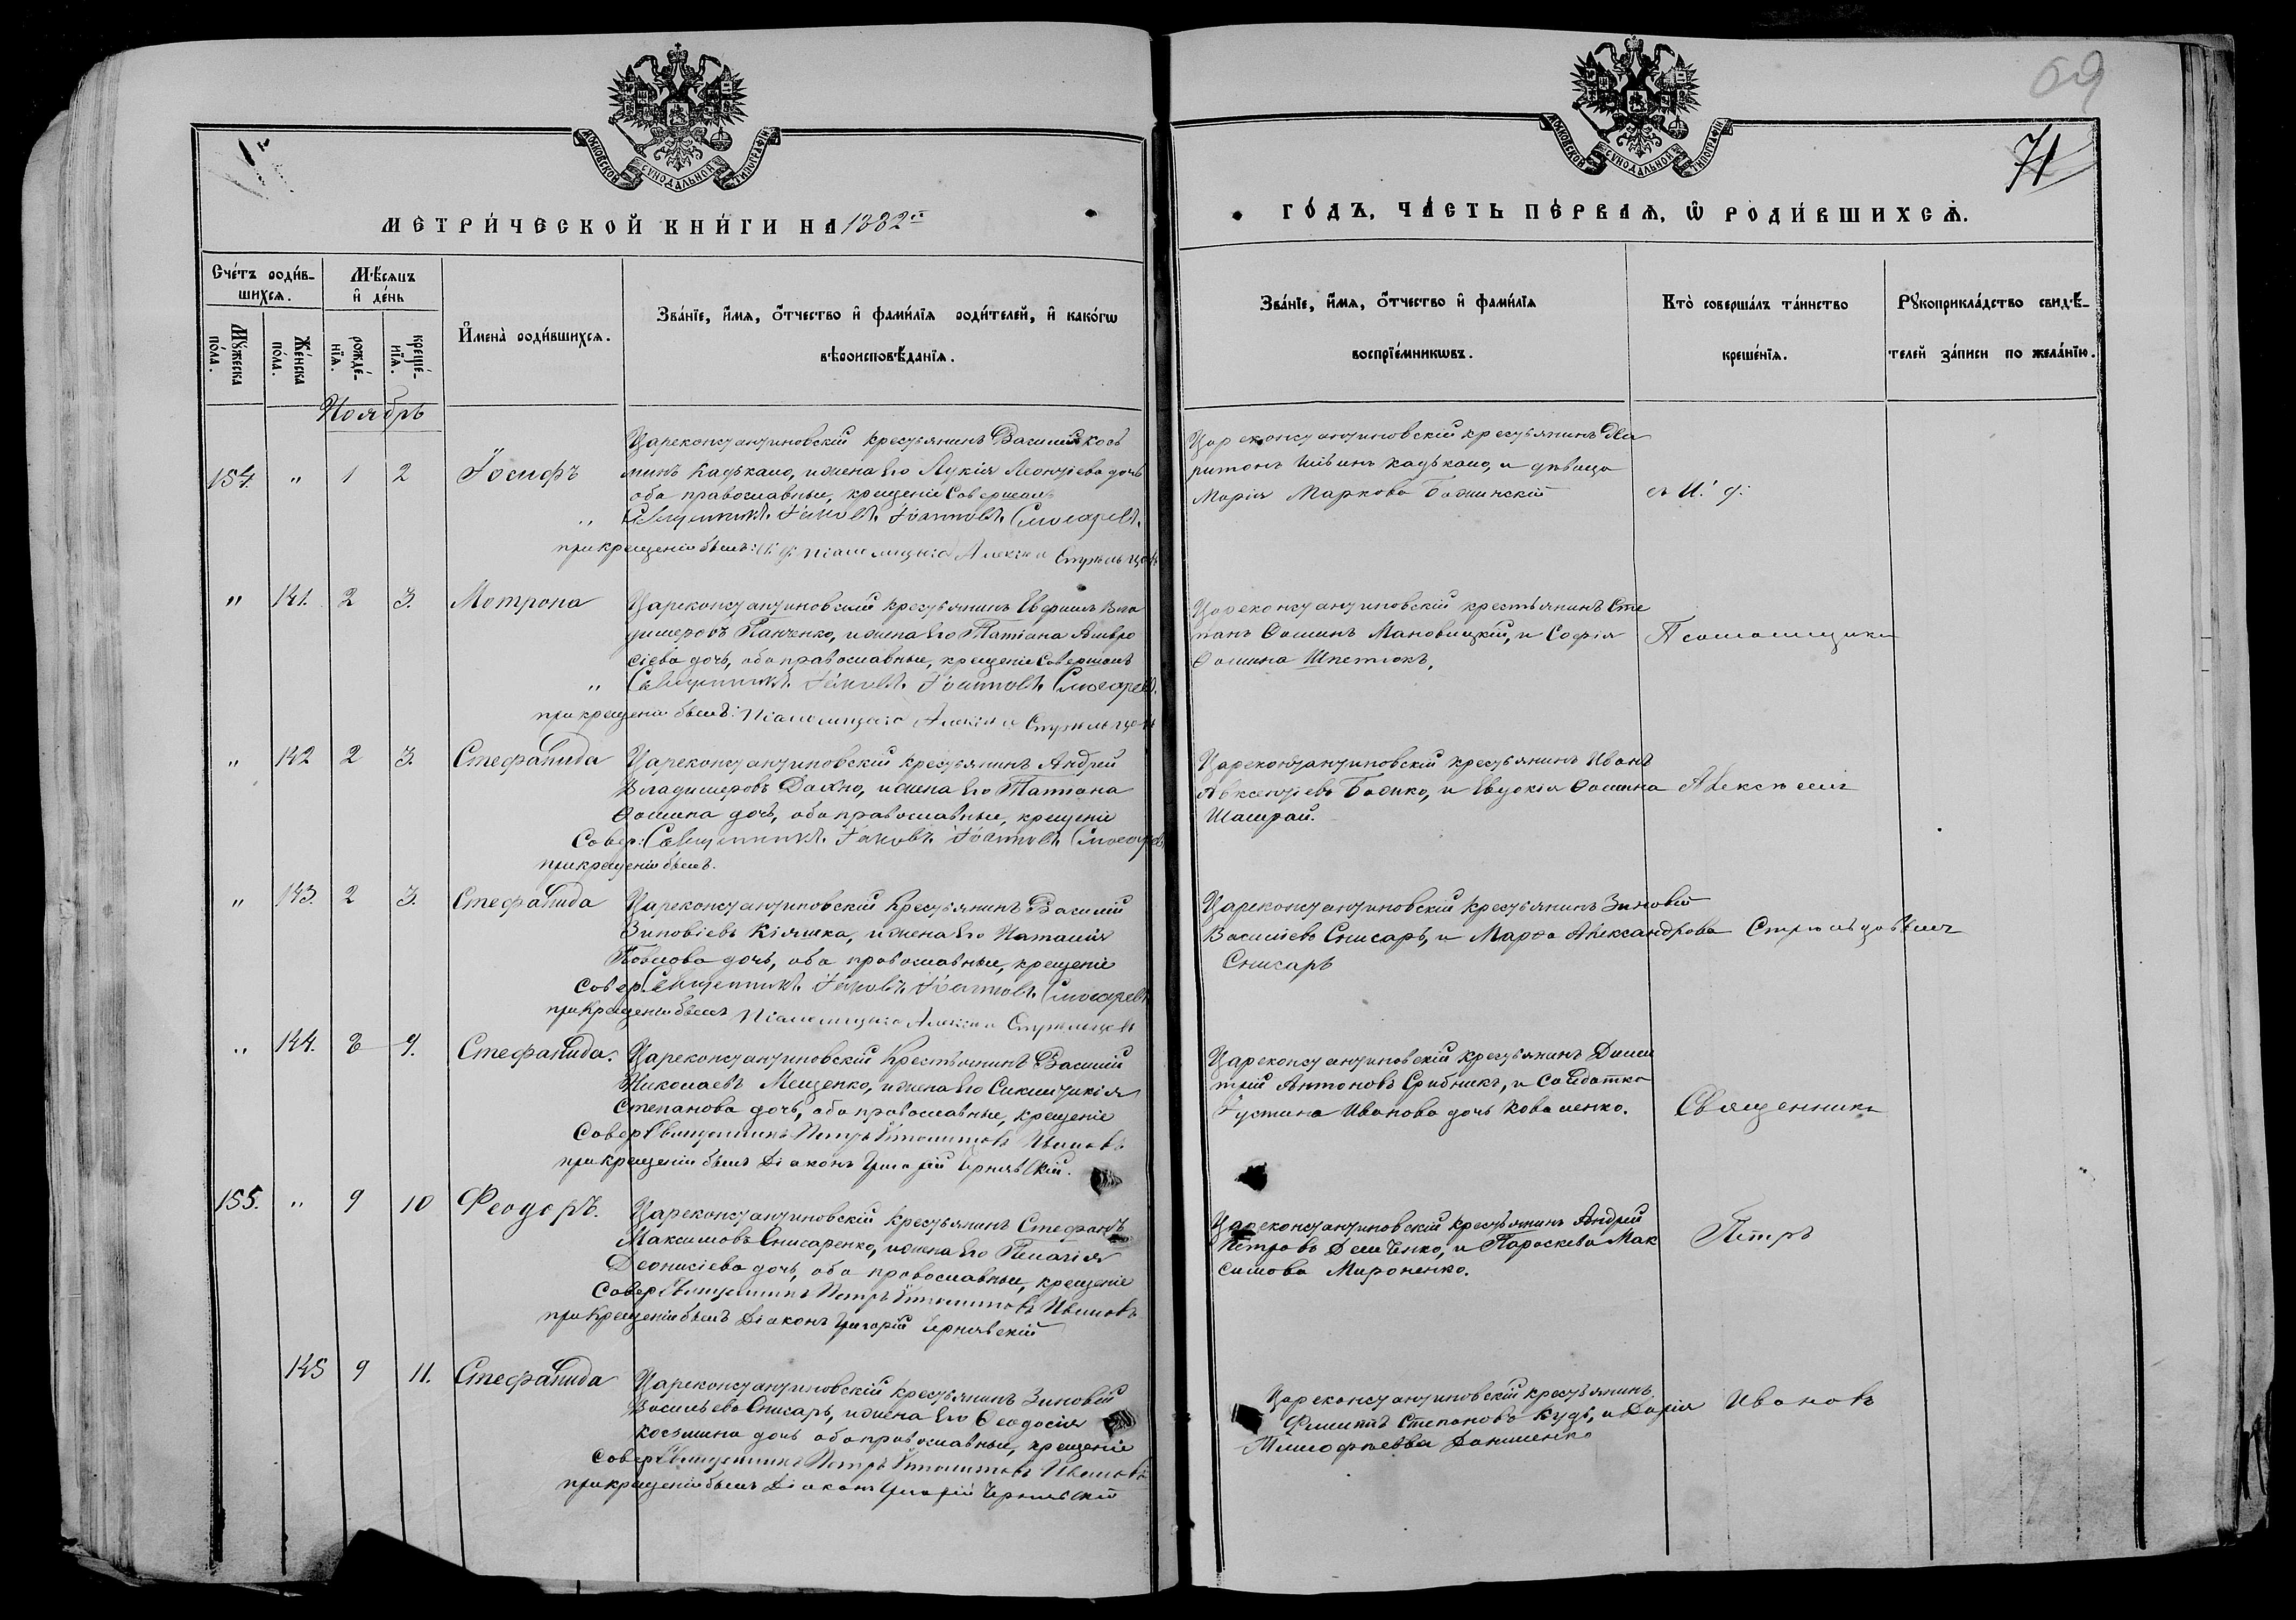 69
71
МОСКОВСКОЙ СѴНОДАЛЬНОЙ ТИПОГРАФІИ
МОСКОВСКОЙ СѴНОДАЛЬНОЙ ТИПОГРАФІИ
МЕТРИ́ЧЕСКОЙ КНИ́ГИ НА 1882й
ГО́ДЪ, ЧА́СТЬ ПЕ́РВАѦ, Ѡ РОДИ́ВШИХСѦ.
Сче́тъ роди́в-
шихсѧ.
Мꙋ́жеска по́ла.
Же́нска по́ла.
Мѣ́сѧцъ
и҆ де́нь
рожде́-нїѧ.
креще́-нїѧ.
И҆мена̀ роди́вшихсѧ.
Зва́нїе, и҆́мѧ, ѻ҆́тчество и҆ фами́лїѧ роди́телей, и҆ како́гѡ
вѣроисповѣ́данїѧ.
Зва́нїе, и҆́мѧ, ѻ҆́тчество и҆ фами́лїѧ
воспрїе́мникѡвъ.
Кто̀ соверша́лъ та́инство
креще́нїѧ.
Рꙋкоприкла́дство свидѣ́-
телей за́писи по жела́нїю.
Ноябрь
154. " 1 2 Іосифъ
Цареконстантиновскій крестьянинъ Василій Козь
минъ Кадькало, и жена его Лукія Леонтіева дочь
оба православные, крещеніе Совершалъ
" Священникъ Іаковъ Іоанновъ Слюсаревъ
при крещеніи былъ: И. д. псаломщика Алексій Стрельцовъ
Цареконстантиновскій крестьянинъ
Кадькало, и дѣвица
Марія Маркова
съ И. д.
" 141. 2 3. Мотрона
Цареконстантиновскій крестьянинъ Евфимъ Вла
димеровъ Панченко, и жена его Татіана Амвро
сіева дочь, оба православные, крещеніе Совершалъ
" Священникъ Іаковъ Іоанновъ Слюсаревъ
при крещеніи былъ: псаломщика Алексій Стрельцовъ
Цареконстантиновскій крестьянинъ Сте
панъ Ѳоминъ Мановицкій, и Софія
Ѳомина Шпетюкъ,
Псаломщикъ
" 142 2 3. Стефанида
Цареконстантиновскій крестьянинъ Андрей
Владимеровъ Дахно, и жена его Татіана
Ѳомина дочь, оба православные, крещеніе
Совер: Священникъ Іаковъ Іоанновъ Слюсаревъ
при крещеніи былъ.
Цареконстантиновскій крестьянинъ Иванъ
Авксентіевъ Бабико, и Евдокія Ѳомина
Шамрай.
Алексѣемъ
" 143. 2 3. Стефанида
Цареконстантиновскій Крестьянинъ Василій
Зиновіевъ Кіяшка, и жена его Наталія
Павлова дочь, оба православные, крещеніе
Совер. Священникъ Іаковъ Іоанновъ Слюсаревъ
при Крещеніи былъ псаломщика Алексій Стрельцовъ
Цареконстантиновскій крестьянинъ Зиновій
Василіевъ Снисарь, и Марѳа Александрова
Снисарь
Стрельцовымъ
" 144. 8 9. Стефанида.
Цареконстантиновскій Крестьянинъ Василій
Николаевъ Мещенко, и жена его Синклитикія
Степанова дочь, оба православные, крещеніе
Совер Священникъ Петръ Ивановъ
при Крещеніи былъ Діаконъ Григорій Чернявскій.
Цареконстантиновскій крестьянинъ Дими
трій Антоновъ Срибникъ, и Солдатка
Іустина Иванова дочь Коваленко.
Священникъ
155. " 9 10 Феодоръ.
Цареконстантиновскій крестьянинъ Стефанъ
Максимовъ Снисаренко, и жена его Пелагія
Деонисіева дочь, оба православные, крещеніе
Совер Священникъ Петръ Ивановъ
при Крещеніи былъ Діаконъ Григорій Чернявскій
Цареконстантиновскій крестьянинъ Андрей
Петровъ Демченко, и Параскева Мак
симова Мироненко.
Петръ
145 9 11. Стефанида
Цареконстантиновскій крестьянинъ Зиновій
Васильевъ Снисарь, и жена его Ѳеодосія
Козьмина дочь оба православные, крещеніе
Совер Священникъ Петръ Ивановъ
при крещеніи былъ Діаконъ Григорій Чернявскій
Цареконстантиновскій крестьянинъ
Филиппъ Степановъ Кудь, и Дарія
Тимофеевва Даниленко
Ивановъ